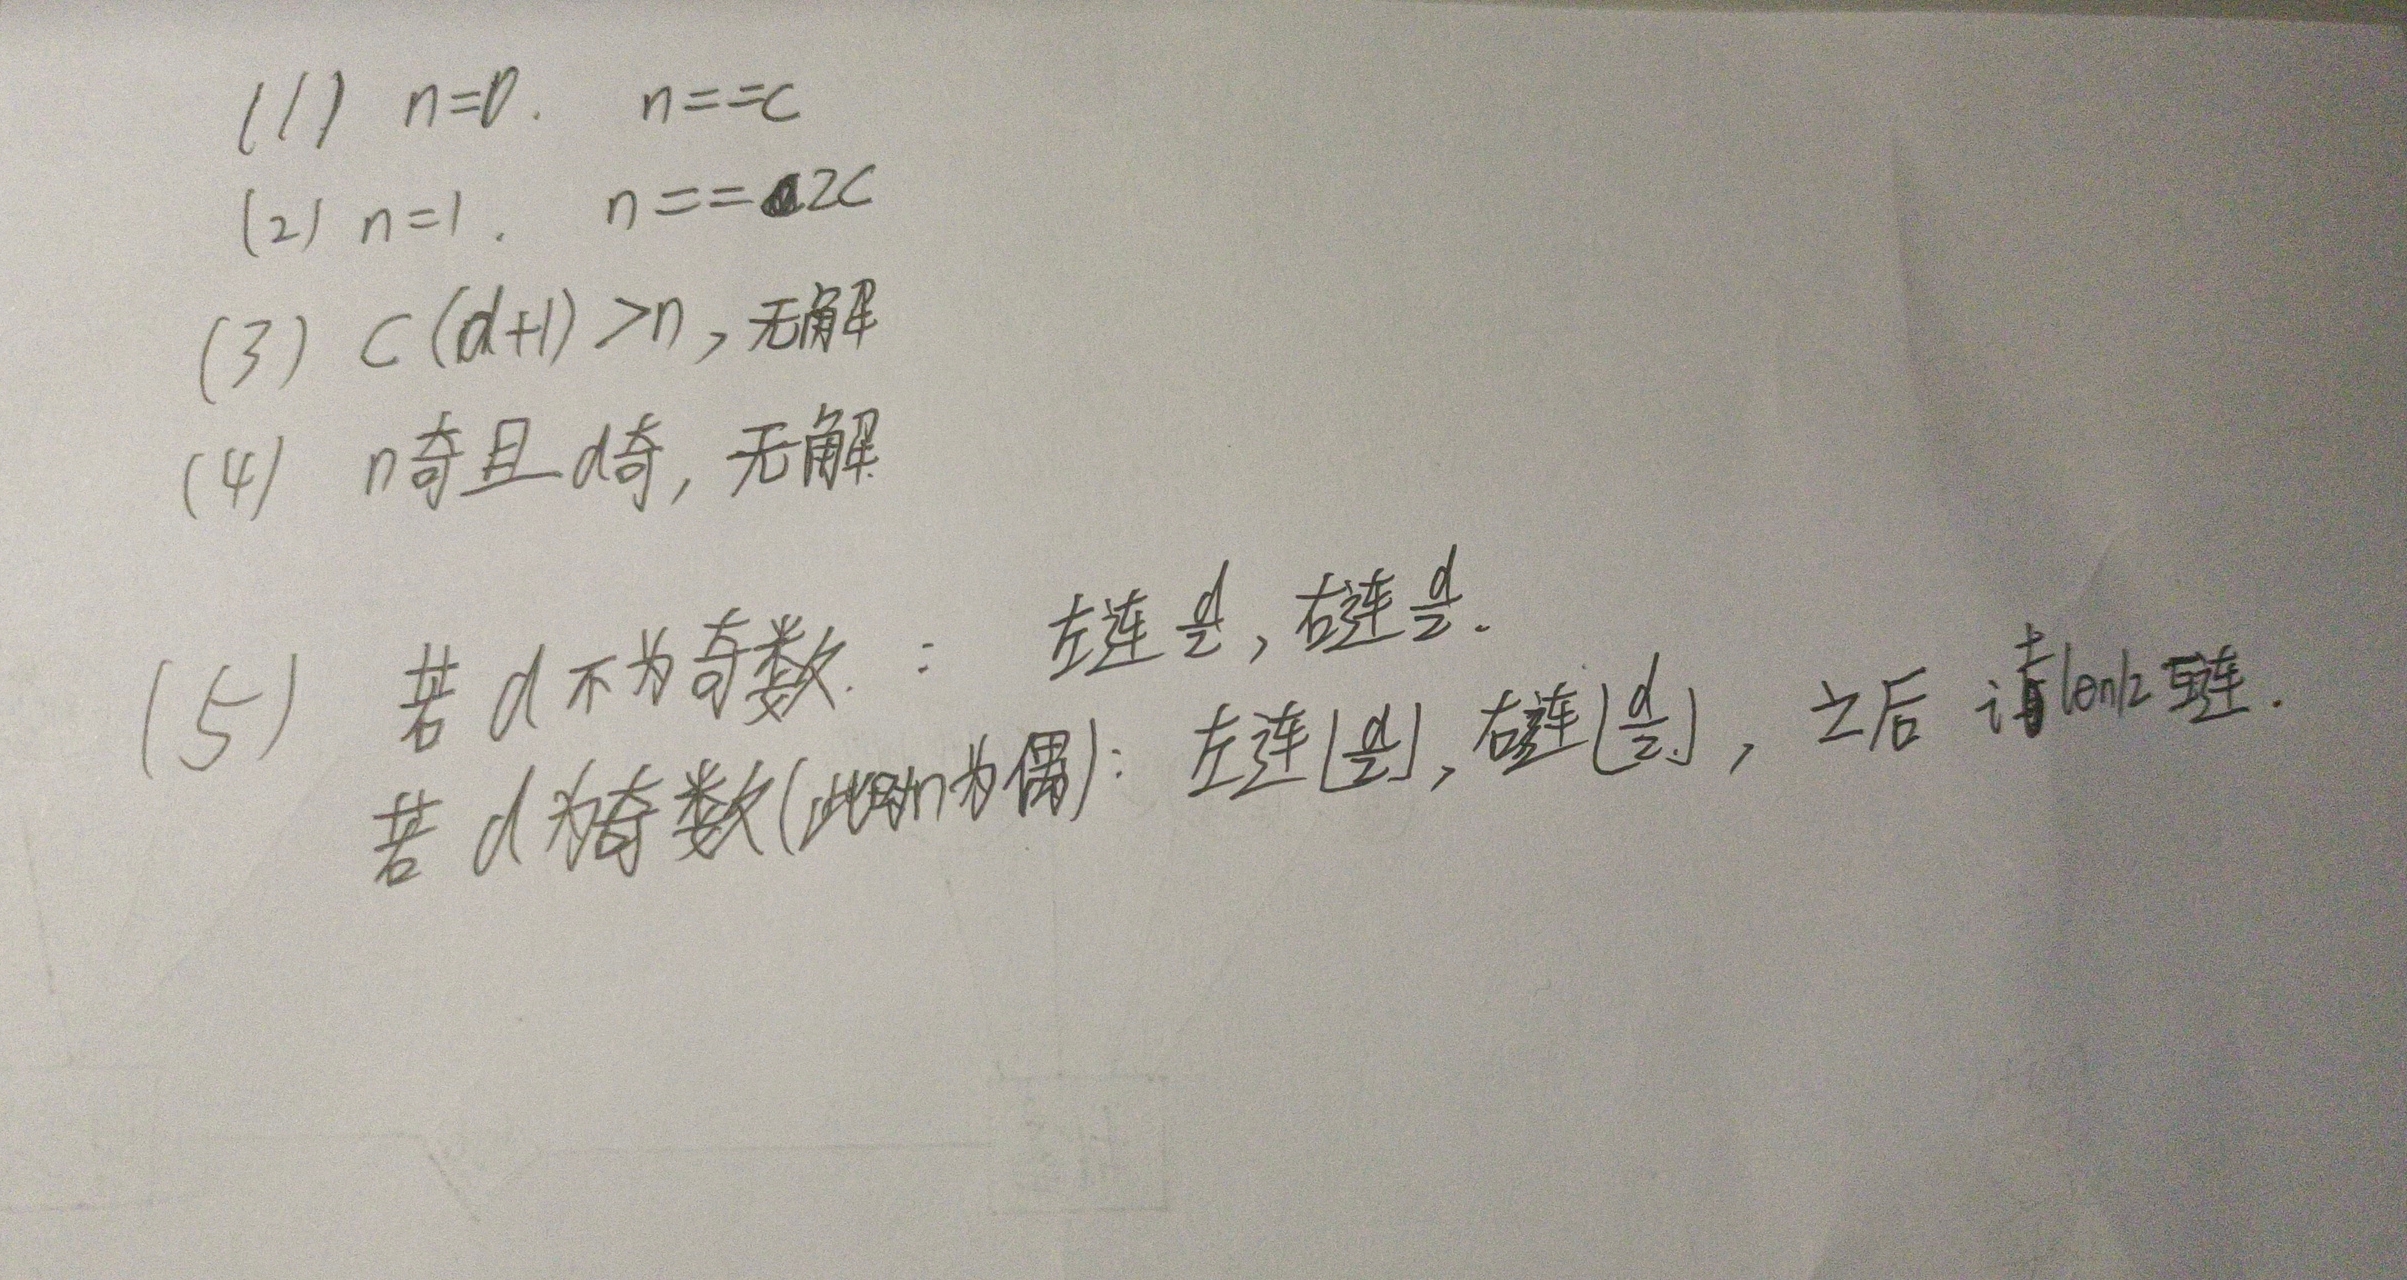 (1) n=0. n==c
(2) n=1. n==2c
(3) c(d+1)>n,无解
(4) n奇且d奇,无解
(5) 若d不为奇数: 左连d/2,右连d/2.
若d为奇数(此时n为偶): 左连⌊d/2⌋,右连⌊d/2⌋,之后 len/2 互连.